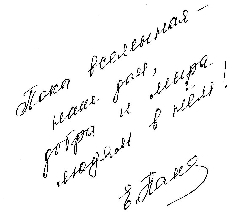 Пока вселенная —
наш дом,
добра и мира
людям в нём!
Е. Папа